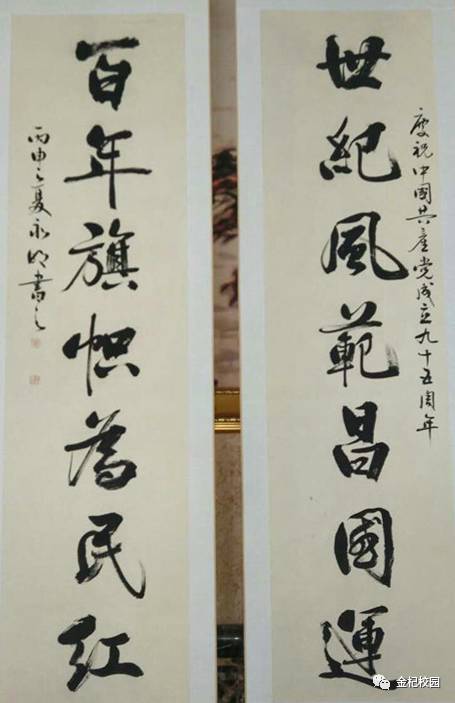 慶祝中國共產党成立九十五周年
世紀風範昌國運
百年旗帜為民紅
丙申之夏永明書之
金杞校园